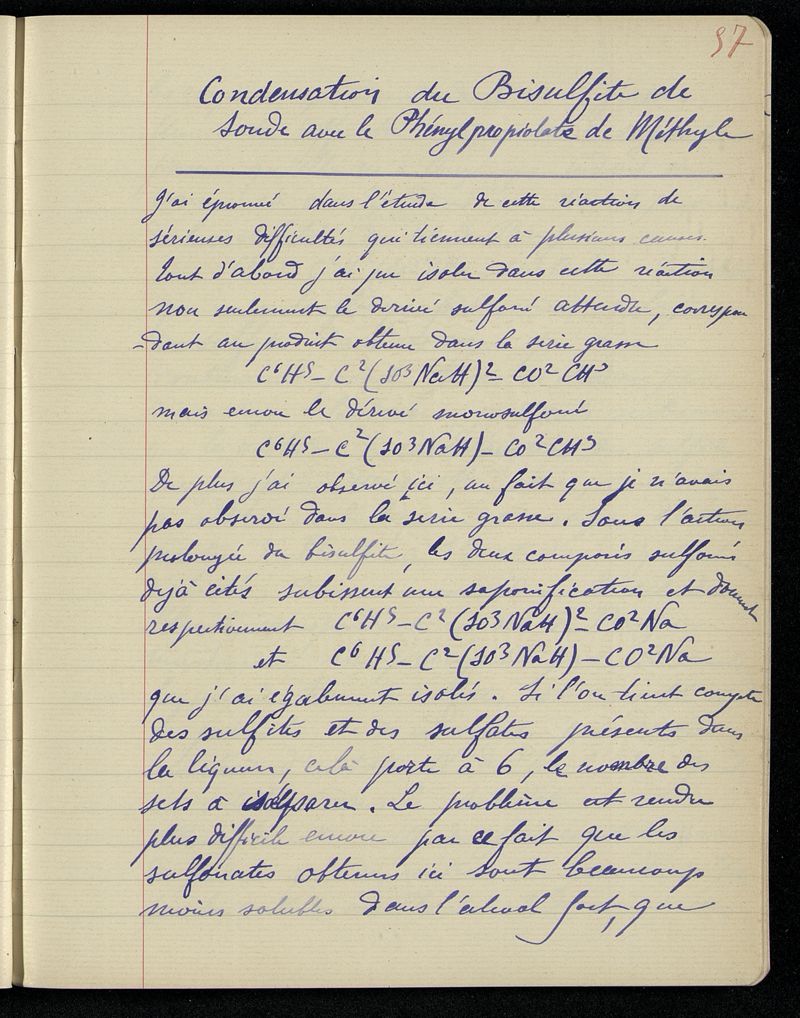 97
Condensation du Bisulfite de
Soude avec le Phénylpropiolate de Méthyle
J'ai éprouvé dans l'étude de cette réaction de
sérieuses difficultés qui tiennent à plusieurs causes.
Tout d'abord j'ai pu isoler dans cette réaction
non seulement le dérivé sulfoné attendu, correspon
-dant au produit obtenu dans la série grasse
C⁶H⁵ – C²(SO³NaH)² – CO²CH³
mais encore le dérivé monosulfoné
C⁶H⁵ – C²(SO³NaH) – CO²CH³
De plus j'ai observé ici, un fait que je n'avais
pas observé dans la série grasse. Sous l'action
prolongée du bisulfite, les deux composés sulfonés
déjà cités subissent une saponification et donnent
respectivement C⁶H⁵ – C²(SO³NaH)² – CO²Na
et C⁶H⁵ – C²(SO³NaH) – CO²Na
que j'ai également isolés. Si l'on tient compte
des sulfites et des sulfates présents dans
la liqueur, cela porte à 6, le nombre des
sels à séparer. Le problème est rendu
plus difficile encore par ce fait que les
sulfonates obtenus ici sont beaucoup
moins solubles dans l'alcool fort, que